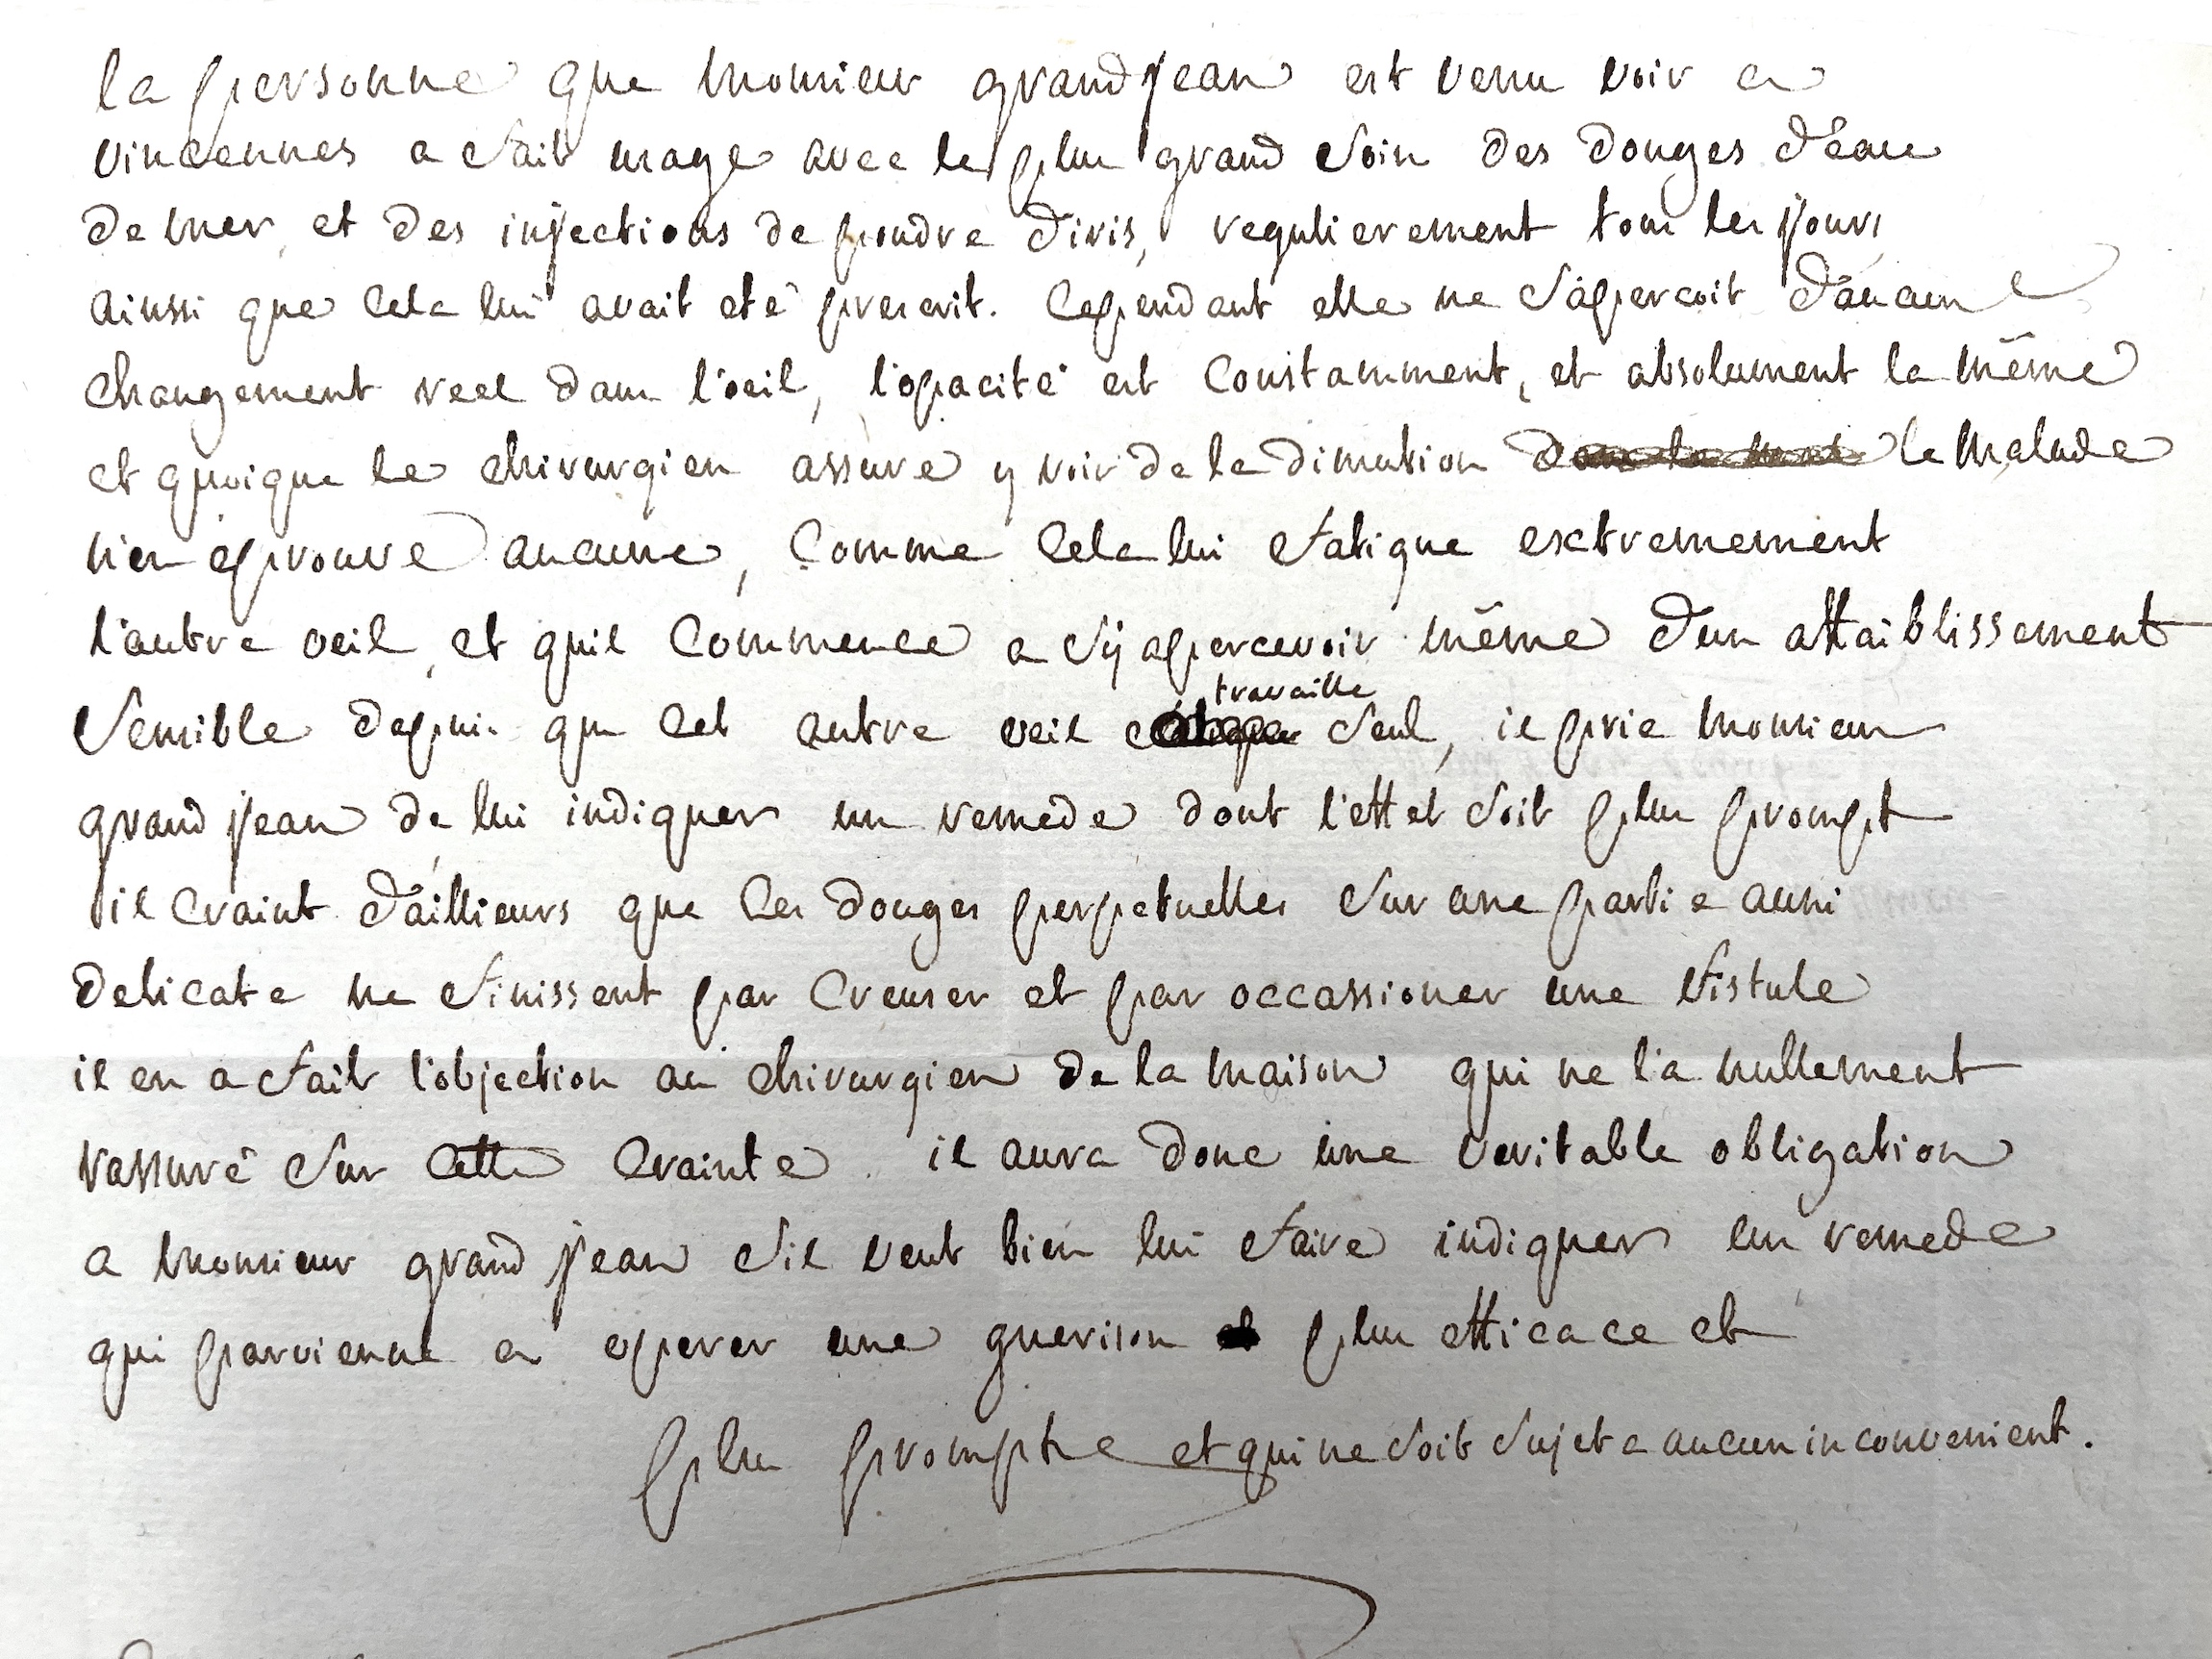 la personne que monsieur grandjean est venu voir a
vincennes a fait usage avec le plus grand soin des douges d'eau
de mer, et des injections de poudre d'iris, regulierement tous les jours
ainsi que cela lui avait eté prescrit. cependant elle ne s'apercoit d'aucun
changement reel dans l'oeil, l'opacité est constamment, et absolument la même
et quoique le chirurgien assure y voir de la dimution le malade
n'en eprouve aucune, comme cela lui fatigue exctremement
l'autre oeil, et quil commence a s'y apercevoir même d'un affaiblissement
sensible depuis que cet autre oeil travaille seul, il prie monsieur
grand jean de lui indiquer un remede dont l'effet soit plus prompt
il craint d'aillieurs que ces douges perpetuelles sur une partie aussi
delicate ne finissent par creuser et par occassioner une fistule
il en a fait l'objection au chirurgien de la maison qui ne l'a nullement
rassuré sur cette crainte. il aura donc une veritable obligation
a monsieur grand jean s'il veut bien lui faire indiquer un remede
qui parvienne a operer une guerison plus efficace et
plus prompte et qui ne soit sujet a aucun inconvenient.